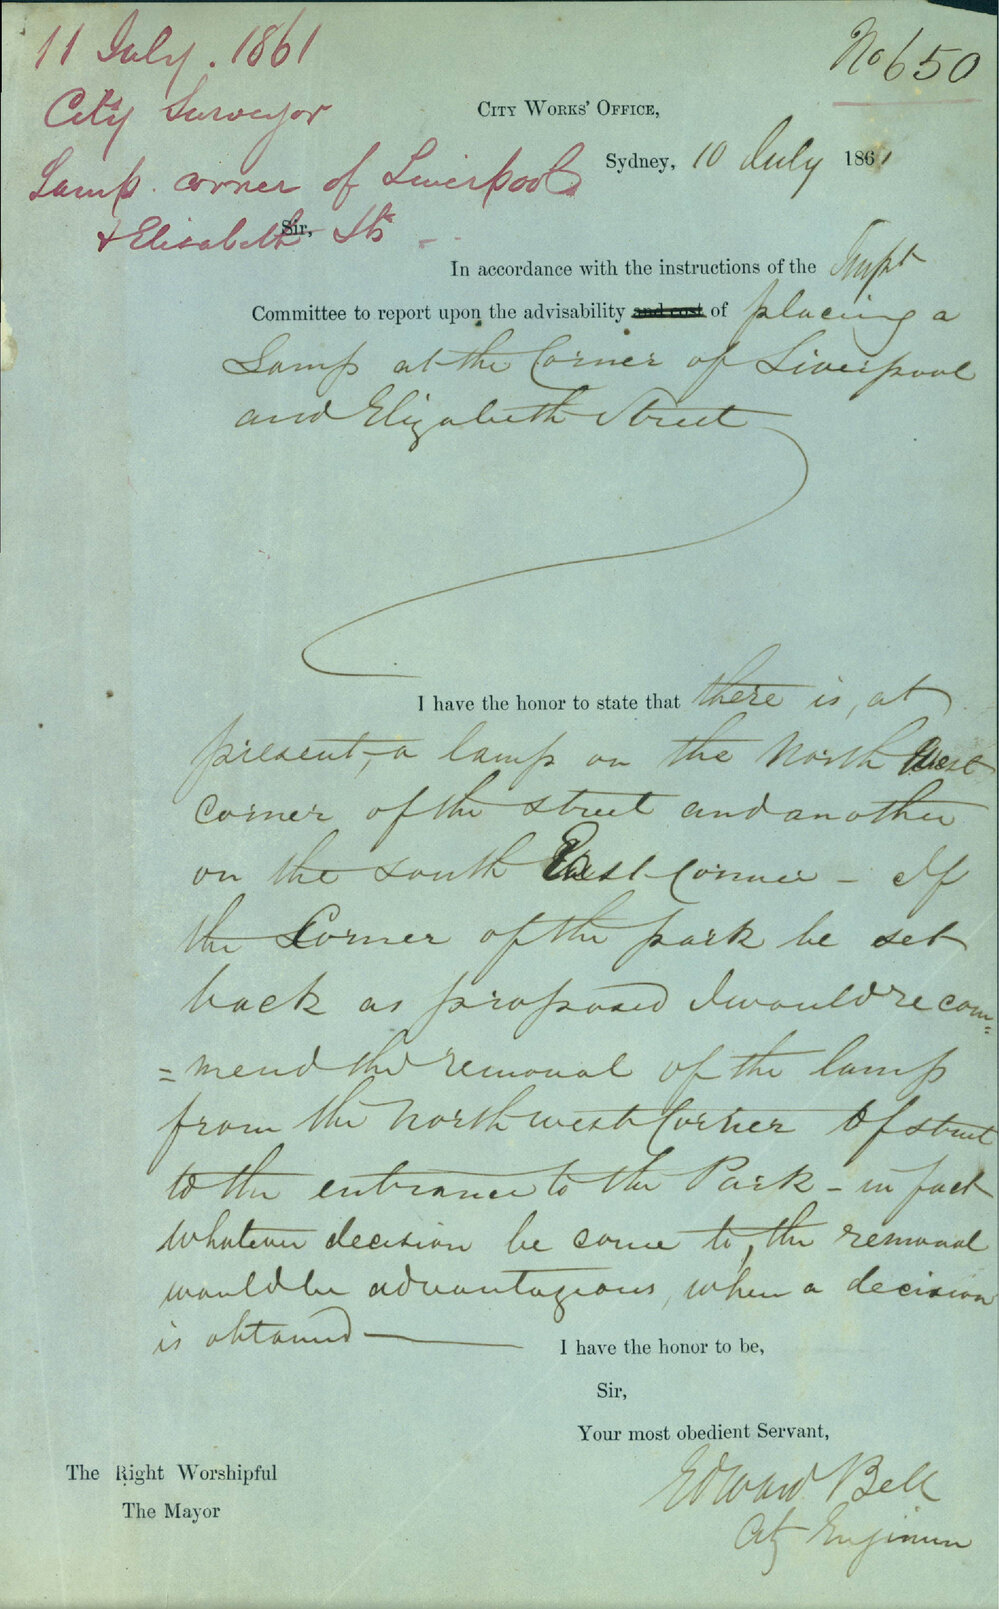 11 July. 1861
No 650
City Surveyor
City Works' Office,
Lamp. corner of Liverpool
Sydney, 10 July 1861
& Elisabeth Sts
Sir,
In accordance with the instructions of the Impt
Committee to report upon the advisability and cost of placing a
Lamp at the Corner of Liverpool
and Elizabeth Street
I have the honor to state that there is, at
present, a lamp on the North West
corner of the street and another
on the south East Corner – If
the Corner of the park be set
back as proposed I would recom=
=mend the removal of the lamp
from the North west Corner of street
to the entrance to the Park – in fact
whatever decision be come to, the removal
would be advantageous, when a decision
is obtained
I have the honor to be,
Sir,
Your most obedient Servant,
Edward Bell
City Engineer
The Right Worshipful
The Mayor